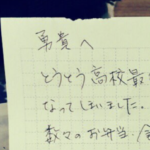 勇貴へ
とうとう高校最
なってしまいました。
数々のお弁当、